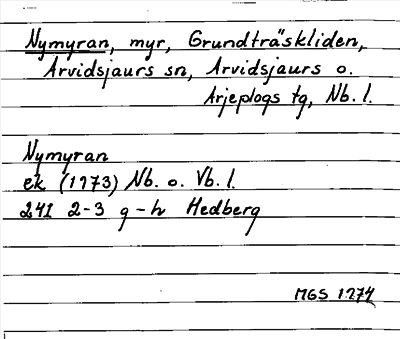 Nymyran, myr, Grundträskliden,
Arvidsjaurs sn, Arvidsjaurs o.
Arjeplogs tg, Nb. l.
Nymyran
ek (1973) Nb. o. Vb. l.
241 2-3 g-h Hedberg
MGS 1974